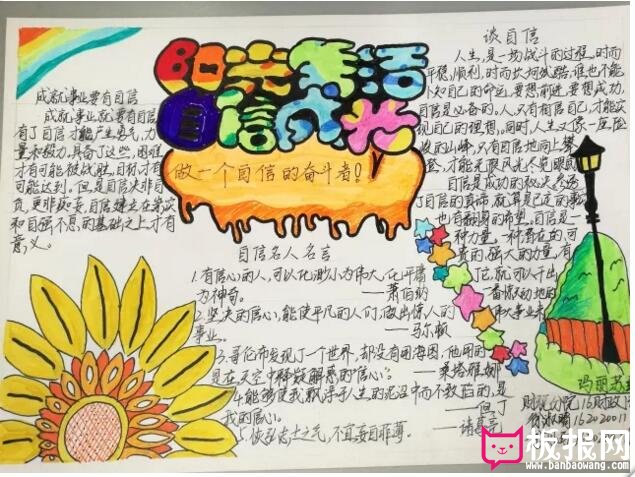 阳光生活
自信成光
做一个自信的奋斗者!
成就事业要有自信
成就事业就要有自信,
有了自信才能产生勇气,力
量和毅力。具备了这些,困难
才有可能被战胜,目标才有
可能达到。但是自信决非自
负,更非
自信建立在
和自强不息的基础之上才有
意义。
谈自信
人生,是一场战斗的过程,时而
平稳,顺利,时而坎坷
谁也不能
自己的命运,要想前进,要想成功,
自信是必备的。人只有相信自己,才能实
现自己的理想。同时,人生又像一座险
的山峰,只有自信地向上攀
登,才能
无限风光
自信是成功的秘诀
了自信的
就算是
的
也有
的希望。自信是一
种力量,一种潜在的可
贵的,强大的力量,有
了它,就可以干出
一番惊天动地的
伟大事业来
自信名人名言
1.有信心的人,可以化渺小为伟大,化平庸
为神奇。
——萧伯纳
2.坚决的信心,能使平凡的人们,做出惊人的
事业。
——马尔顿
3.哥伦布发现了一个世界,却没有用海图,他用的
是在天空中释疑解惑的信心。
——桑塔雅娜
4.能够使我飘浮于人生的泥沼中而不致陷的,是
我的信心。
——但丁
5.恢弘志士之气,不宜妄自菲薄。
——诸葛亮
玛丽
财税分院16财政
16202001
板报网
www.banbaowang.com